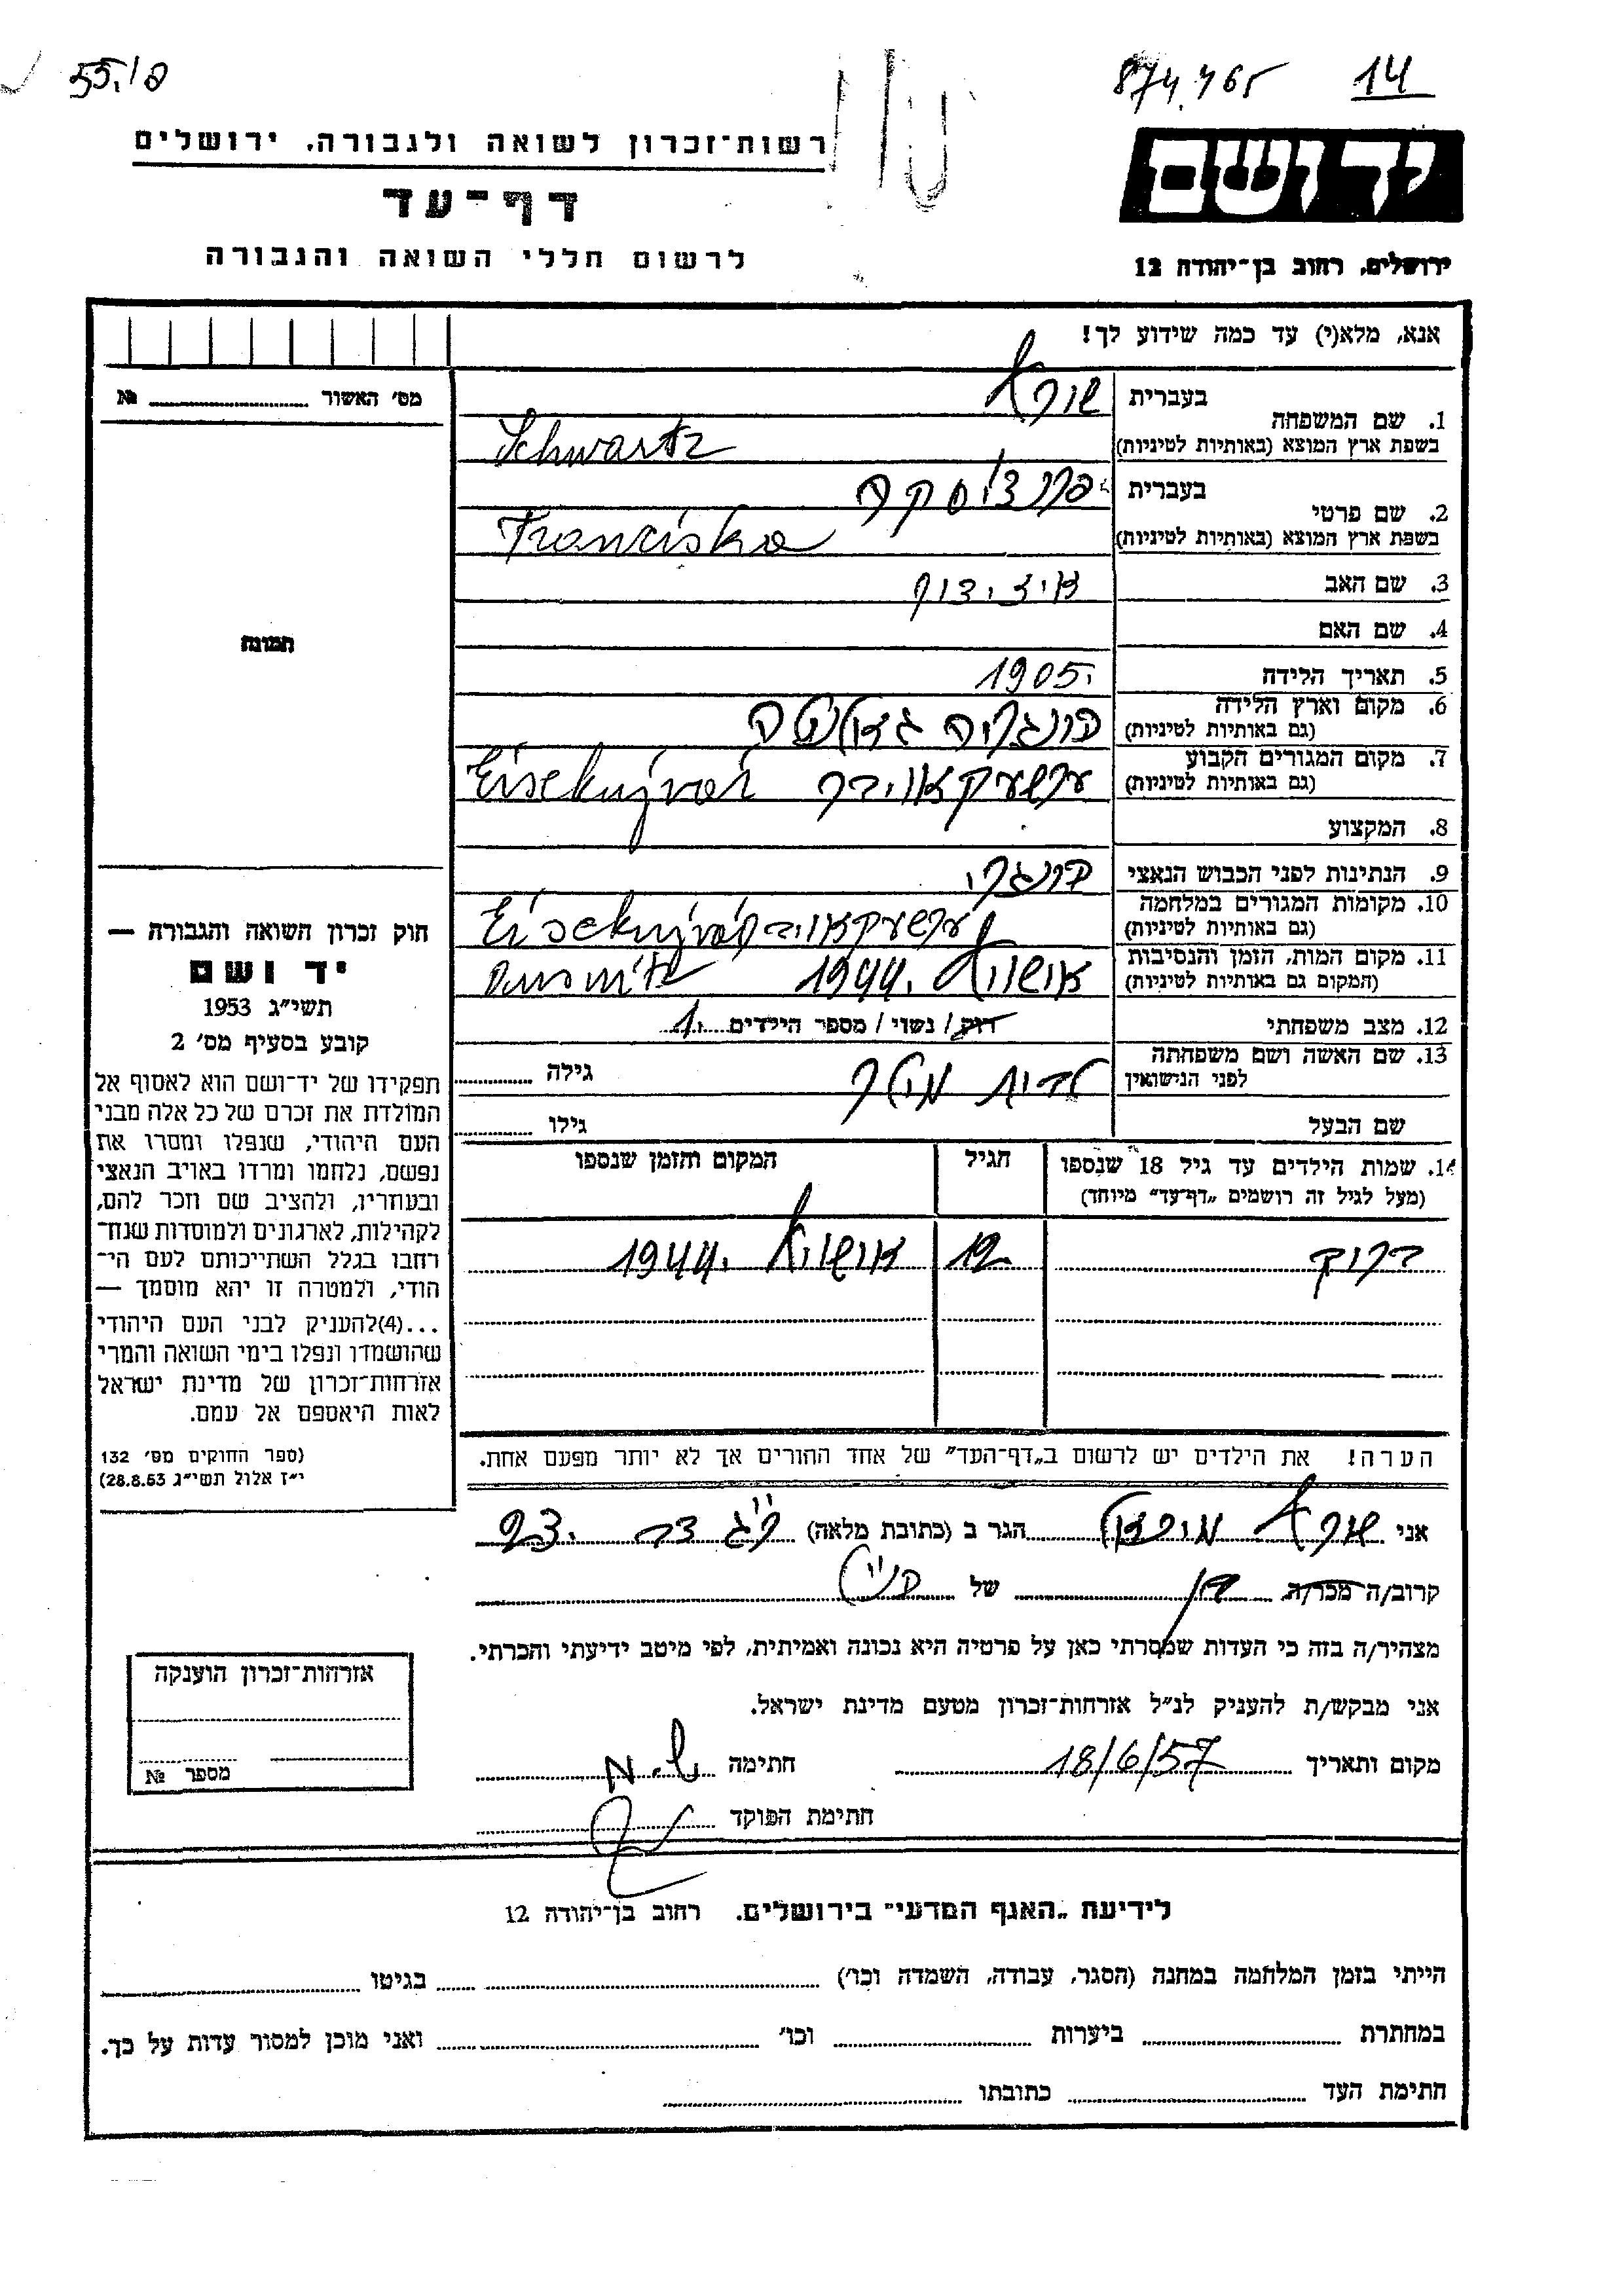 55.10
874.465 14
רשות־זכרון לשואה ולגבורה, ירושלים
דף־עד
לרשום חללי השואה והגבורה
יד ושם
ירושלים, רחוב בן־יהודה 12
אנא, מלא(י) עד כמה שידוע לך!
מס׳ האשור №
1. שם המשפחה בעברית שורץ
בשפת ארץ המוצא (באותיות לטיניות) Schwartz
2. שם פרטי בעברית פרנציסקה
בשפת ארץ המוצא (באותיות לטיניות) Franciska
3. שם האב
4. שם האם
5. תאריך הלידה 1905.
6. מקום וארץ הלידה
(גם באותיות לטיניות)
7. מקום המגורים הקבוע Érsekújvár
(גם באותיות לטיניות)
8. המקצוע
9. הנתינות לפני הכבוש הנאצי הונגרי
10. מקומות המגורים במלחמה Érsekújvár
(גם באותיות לטיניות)
11. מקום המות, הזמן והנסיבות אושויץ 1944.
(המקום גם באותיות לטיניות)
12. מצב משפחתי רוק / נשוי / מספר הילדים 1.
13. שם האשה ושם משפחתה גילה
לפני הנישואין
שם הבעל גילו
14. שמות הילדים עד גיל 18 שנספו הגיל המקום והזמן שנספו
(מעל לגיל זה רושמים „דף־עד״ מיוחד)
12 אושויץ 1944.
הערה! את הילדים יש לרשום ב„דף־העד״ של אחד ההורים אך לא יותר מפעם אחת.
תמונה
חוק זכרון השואה והגבורה —
יד ושם
תשי״ג 1953
קובע בסעיף מס׳ 2
תפקידו של יד־ושם הוא לאסוף אל
המולדת את זכרם של כל אלה מבני
העם היהודי, שנפלו ומסרו את
נפשם, נלחמו ומרדו באויב הנאצי
ובעוזריו, ולהציב שם וזכר להם,
לקהילות, לארגונים ולמוסדות שנח־
רבו בגלל השתייכותם לעם הי־
הודי, ולמטרה זו יהא מוסמך —
...(4) להעניק לבני העם היהודי
שהושמדו ונפלו בימי השואה והמרי
אזרחות־זכרון של מדינת ישראל
לאות היאספם אל עמם.
(ספר החוקים מס׳ 132
י״ז אלול תשי״ג 28.8.53)
אני שורץ הגר ב (כתובת מלאה)
קרוב/ה מכר/ה של
מצהיר/ה בזה כי העדות שמסרתי כאן על פרטיה היא נכונה ואמיתית, לפי מיטב ידיעתי והכרתי.
אני מבקש/ת להעניק לנ״ל אזרחות־זכרון מטעם מדינת ישראל.
מקום ותאריך 18/6/57 חתימה
חתימת הפוקד
אזרחות־זכרון הוענקה
מספר №
לידיעת „האגף המדעי״ בירושלים. רחוב בן־יהודה 12
הייתי בזמן המלחמה במחנה (הסגר, עבודה, השמדה וכו׳) בגיטו
במחתרת ביערות וכו׳ ואני מוכן למסור עדות על כך.
חתימת העד כתובתו